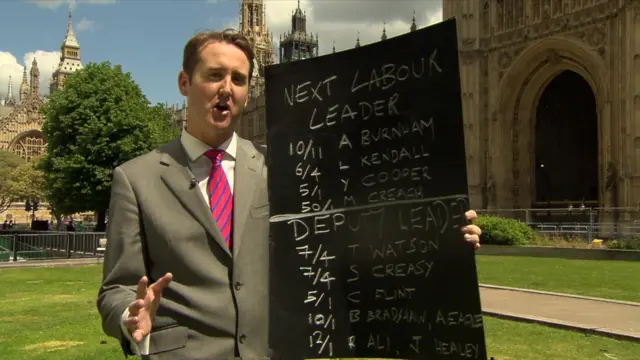 NEXT LABOUR
LEADER
10/11 A BURNHAM
6/4 L KENDALL
5/1 Y COOPER
50/1 M CREAGH
DEPUTY LEADER
7/4 T WATSON
7/4 S CREASY
5/1 C FLINT
10/1 B BRADSHAW, A EAGLE
12/1 R ALI, J HEALEY